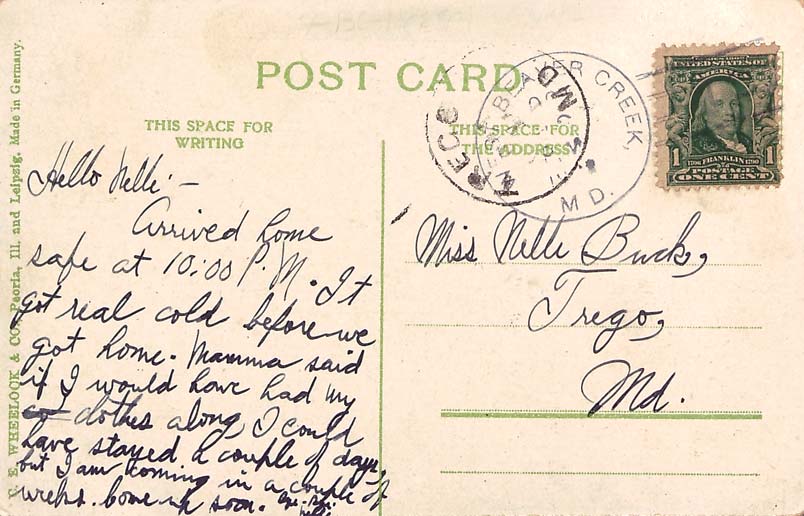 POST CARD
THIS SPACE FOR
WRITING
THIS SPACE FOR
THE ADDRESS
C. E. WHEELOCK & CO. Peoria, Ill. and Leipzig, Made in Germany.
BEAVER CREEK,
MD.
TREGO
MD
UNITED STATES OF
AMERICA
1 FRANKLIN 1
POSTAGE
ONE CENT
Hello Nelle:—
Arrived home
safe at 10:00 P.M. It
got real cold before we
got home. Mamma said
if I would have had my
clothes along, I could
have stayed a couple of days,
but I am coming in a couple of
weeks. Come up soon.
Miss Nelle Buck,
Trego,
Md.